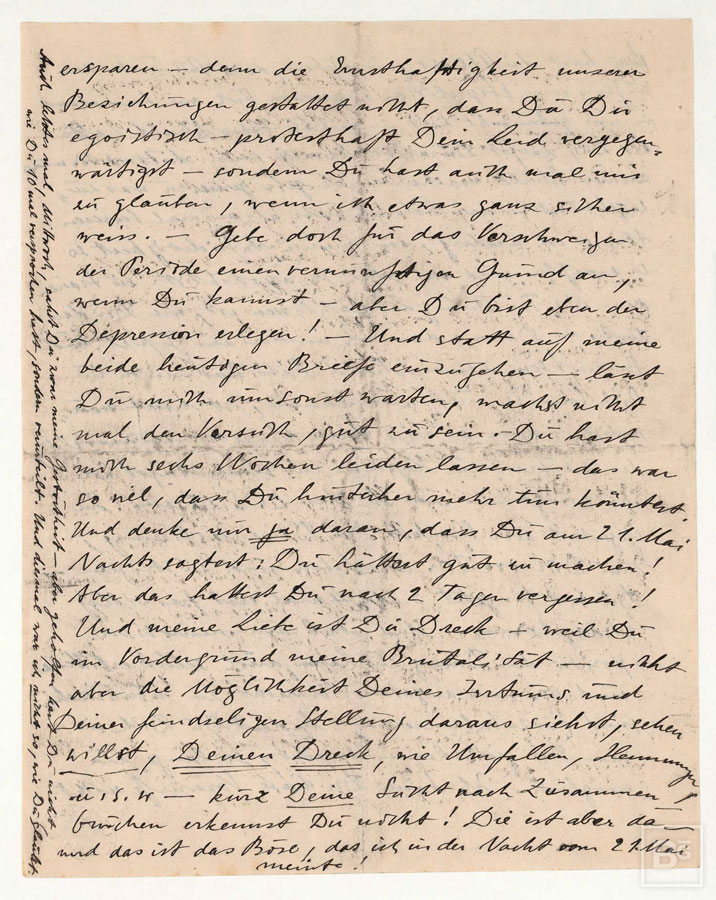 ersparen – denn die Ernsthaftigkeit unserer
Beziehungen gestattet nicht, dass Du Dir
egoistisch – protesthaft Dein Leid vergegen-
wärtigst – sondern Du hast auch mal mir
zu glauben, wenn ich etwas ganz sicher
weiss. – Gebe doch für das Verschweigen
der Periode einen vernünftigen Grund an,
wenn Du kannst – aber Du bist eben der
Depression erlegen! – Und statt auf meine
beide heutigen Briefe einzugehen – lässt
Du mich umsonst warten, machst nicht
mal den Versuch, gut zu sein. – Du hast
mich sechs Wochen leiden lassen – das war
so viel, dass Du hinterher mehr tun könntest.
Und denke nur ja daran, dass Du am 21. Mai
Nachts sagtest: Du hättest gut zu machen!
Aber das hattest Du nach 2 Tagen vergessen!
Und meine Liebe ist Du Dreck – weil Du
im Vordergrund meine Brutalität – nicht
aber die Möglichkeit Deines Irrtums und
Deiner feindseligen Stellung daraus siehst, sehen
willst, Deinen Dreck, wie Umfallen, Hemmungen
u.s.w – kurz Deine Sucht nach Zusammen-
brüchen erkennst Du nicht! Die ist aber da –
und das ist das Böse, das ich in der Nacht vom 21. Mai
meinte!
Auch letztes mal, Mittwoch, sahst Du zwar meine – aber geholfen hast Du nicht
wie Du 10 mal versprochen hast, sondern verurteilt. Und diesmal war ich nicht so, wie Du glaubst.
BG